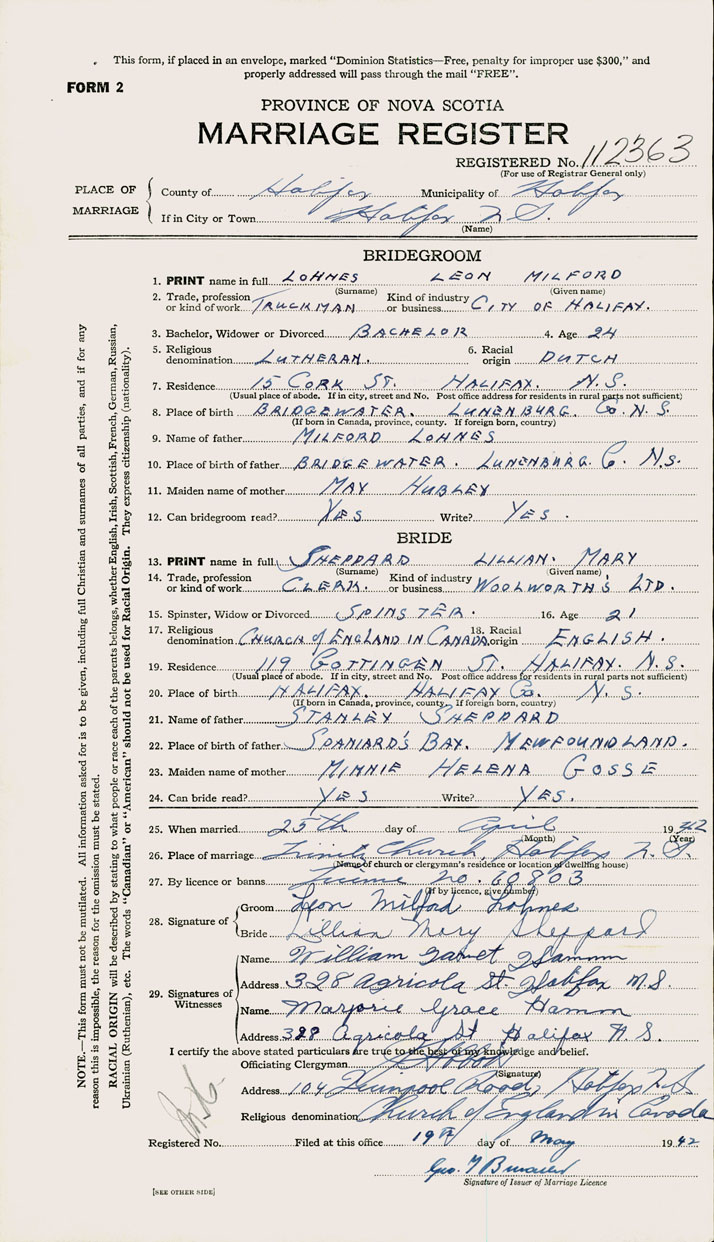 This form, if placed in an envelope, marked "Dominion Statistics—Free, penalty for improper use $300," and
properly addressed will pass through the mail "FREE".
FORM 2
PROVINCE OF NOVA SCOTIA
MARRIAGE REGISTER
REGISTERED No. 112363
(For use of Registrar General only)
PLACE OF MARRIAGE
County of Halifax Municipality of Halifax
If in City or Town Halifax N.S.
(Name)
BRIDEGROOM
1. PRINT name in full LOHNES LEON MILFORD
(Surname) (Given name)
2. Trade, profession or kind of work TRUCKMAN Kind of industry or business CITY OF HALIFAX.
3. Bachelor, Widower or Divorced BACHELOR 4. Age 24
5. Religious denomination LUTHERAN. 6. Racial origin DUTCH
7. Residence 15 CORK ST. HALIFAX. N.S.
(Usual place of abode. If in city, street and No. Post office address for residents in rural parts not sufficient)
8. Place of birth BRIDGEWATER. LUNENBURG. Co. N.S.
(If born in Canada, province, county. If foreign born, country)
9. Name of father MILFORD LOHNES
10. Place of birth of father BRIDGEWATER. LUNENBURG. Co. N.S.
11. Maiden name of mother MAY HUBLEY
12. Can bridegroom read? YES Write? YES.
BRIDE
13. PRINT name in full SHEPPARD LILLIAN. MARY
(Surname) (Given name)
14. Trade, profession or kind of work CLERK. Kind of industry or business WOOLWORTH'S LTD.
15. Spinster, Widow or Divorced SPINSTER. 16. Age 21
17. Religious denomination CHURCH of ENGLAND IN CANADA 18. Racial origin ENGLISH.
19. Residence 119 GOTTINGEN ST. HALIFAX. N.S.
(Usual place of abode. If in city, street and No. Post office address for residents in rural parts not sufficient)
20. Place of birth HALIFAX. HALIFAX Co. N.S.
(If born in Canada, province, county. If foreign born, country)
21. Name of father STANLEY SHEPPARD
22. Place of birth of father SPANIARD'S BAY. NEWFOUNDLAND.
23. Maiden name of mother MINNIE HELENA GOSSE
24. Can bride read? YES Write? YES.
25. When married 25th day of April 1942
(Month) (Year)
26. Place of marriage Trinity Church, Halifax N.S.
(Name of church or clergyman's residence or location of dwelling house)
27. By licence or banns License no. 60803
(If by licence, give number)
28. Signature of
Groom Leon Milford Lohnes
Bride Lillian Mary Sheppard
29. Signatures of Witnesses
Name William Hamm
Address 328 Agricola St. Halifax N.S.
Name Marjorie Grace Hamm
Address 328 Agricola St Halifax N.S.
I certify the above stated particulars are true to the best of my knowledge and belief.
Officiating Clergyman
(Signature)
Address 104 Road, Halifax N.S.
Religious denomination Church of England in Canada
Registered No. Filed at this office 19th day of May 1942
Geo.
Signature of Issuer of Marriage Licence
[SEE OTHER SIDE]
NOTE.—This form must not be mutilated. All information asked for is to be given, including full Christian and surnames of all parties, and if for any
reason this is impossible, the reason for the omission must be stated.
RACIAL ORIGIN will be described by stating to what people or race each of the parents belongs, whether English, Irish, Scottish, French, German, Russian,
Ukrainian (Ruthenian), etc. The words "Canadian" or "American" should not be used for Racial Origin. They express citizenship (nationality).